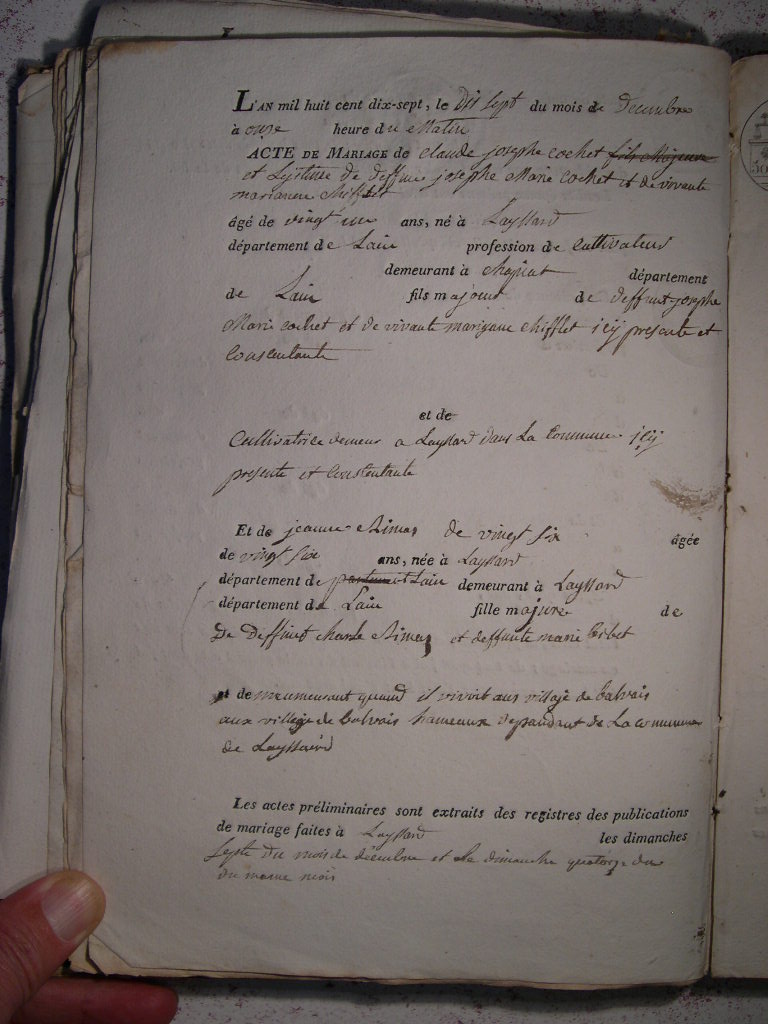 L'AN mil huit cent dix-sept, le dit sept du mois de decembre
à onze heure du Matin
ACTE DE MARIAGE de claude josephe cochet fils Majeure
et Lejitime de deffunt josephe Marie cochet et de vivante
marianne chifflet
âgé de vingt un ans, né à Layssard
département de Lain profession de cultivateur
demeurant à département
de Lain fils majeur de deffunt josephe
Marie cochet et de vivante marianne chifflet icÿ presente et
Consentante
et de
Cultivatrice demeur a Layssard dans La Commune icÿ
presente et Consentante
Et de jeanne de vingt six âgée
de vingt six ans, née à Layssard
département de Lain demeurant à Layssard
département de Lain fille majeure de
De deffunt et deffunte marie
et de quand il vivoit aux village de balvais
aux village de balvais hameaux depandant de La commune
de Layssard
Les actes préliminaires sont extraits des registres des publications
de mariage faites à Layssard les dimanches
Septe du mois de décembre et le dimanche quatorze du
du meme mois